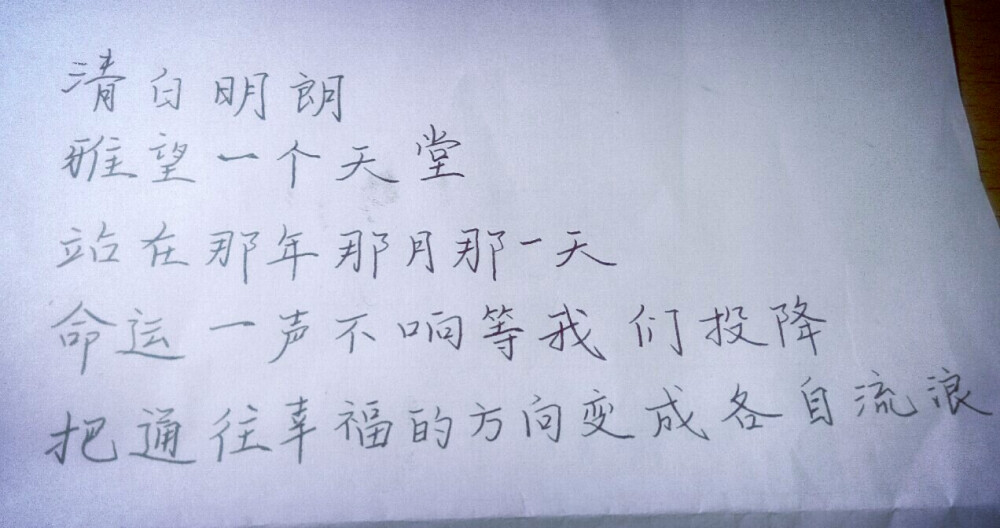 清白明朗
雅望一个天堂
站在那年那月那一天
命运一声不响等我们投降
把通往幸福的方向变成各自流浪